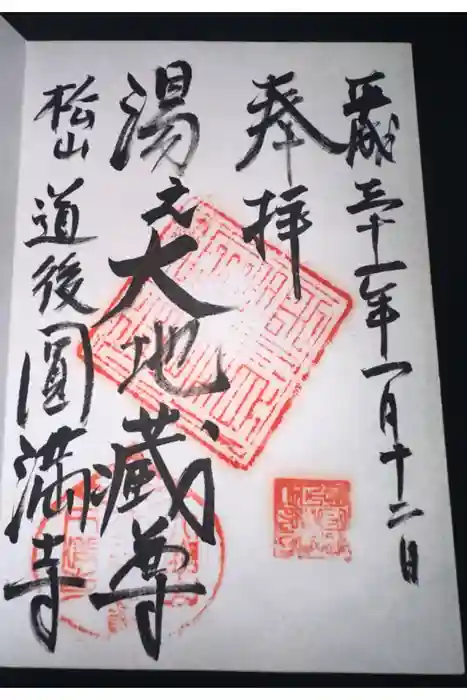 平成三十一年一月十二日
奉拝
湯之大地蔵尊
松山 道後圓満寺